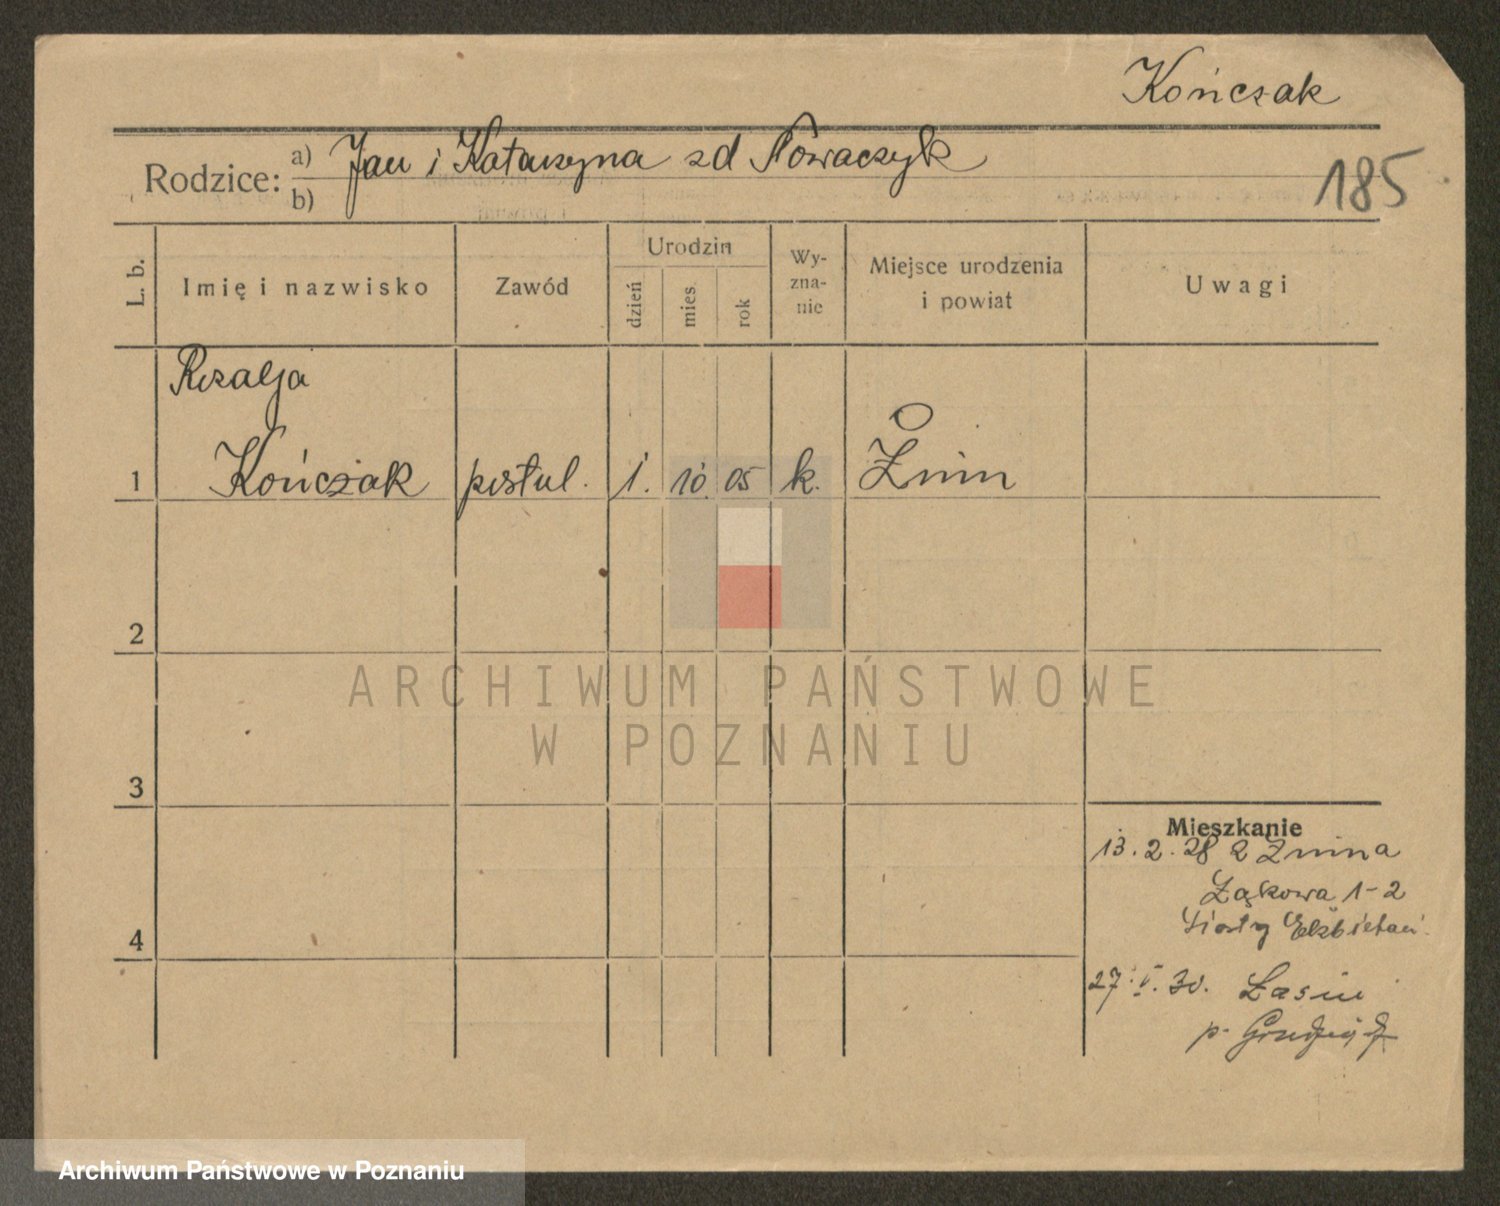 Kończak
Rodzice: a) Jan i Katarzyna zd Nowaczyk
b)
185
L. b.
Imię i nazwisko
Zawód
Urodzin
dzień
mies.
rok
Wy-
zna-
nie
Miejsce urodzenia
i powiat
Uwagi
Rozalja
1 Kończak postul. 1. 10. 05 k. Żnin
2
3
4
Mieszkanie
13. 2. 28 z Żnina
Łąkowa 1-2
Siostry Elżbietan.
27. V. 30. Łasin
p. Grudziądz
ARCHIWUM PAŃSTWOWE
W POZNANIU
Archiwum Państwowe w Poznaniu